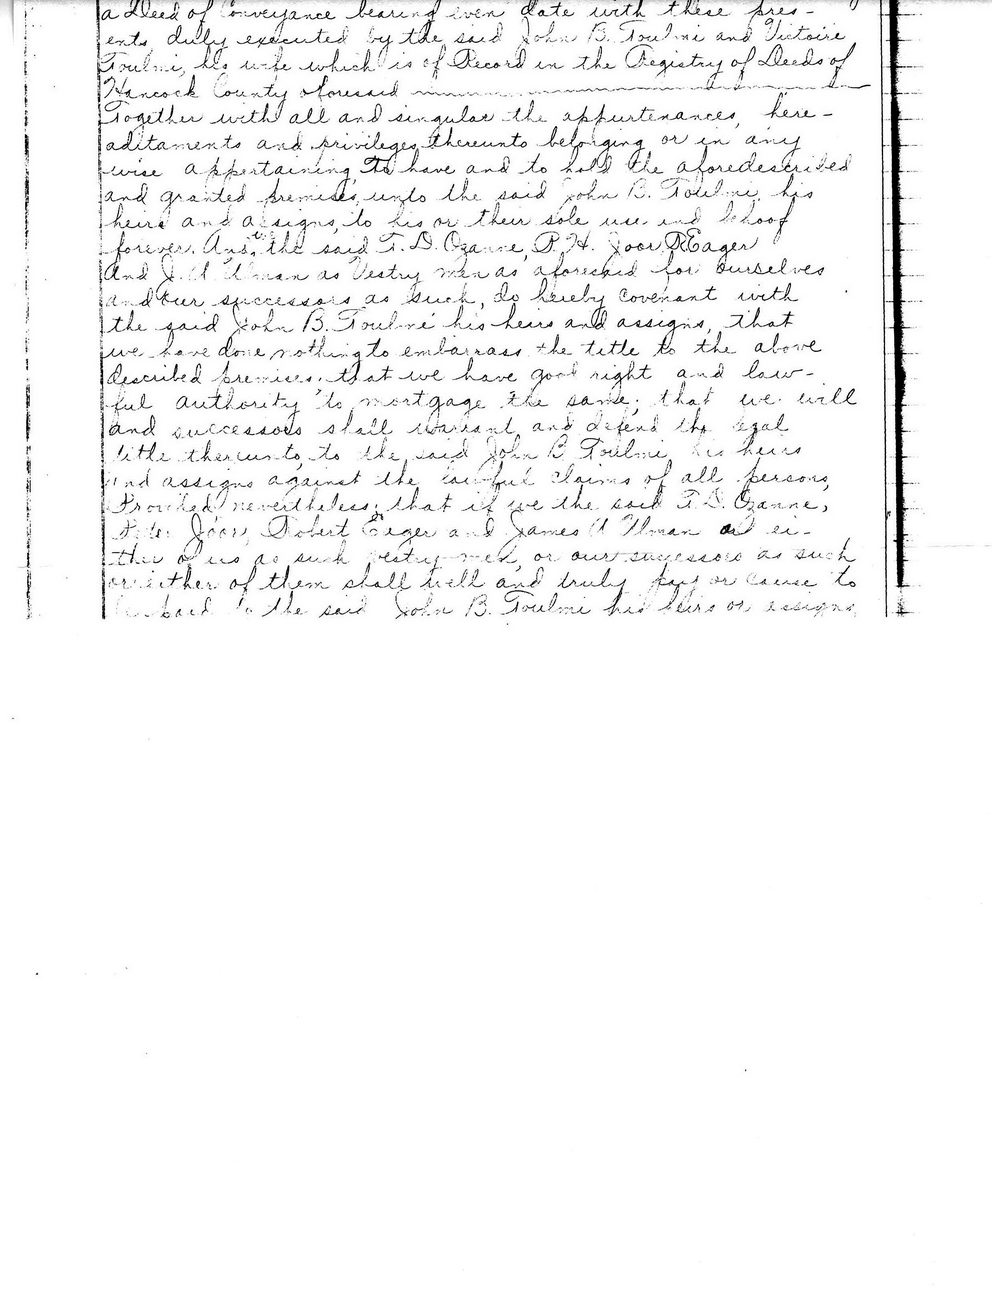 a Deed of Conveyance bearing even date with these pres-
ents duly executed by the said John B. Toulmi and Victoire
Toulmi, his wife which is of Record in the Registry of Deeds of
Hancock County aforesaid
Together with all and singular the appurtenances, here-
aditaments and privileges thereunto belonging or in any
wise appertaining, to have and to hold the aforedescribed
and granted premises, unto the said John B. Toulmi, his
heirs and assigns, to his or their sole use and behoof
forever. And, the said T. D. Ozanne, P. H. Joor, R Eager
And J. A. Ulman as Vestry men as aforesaid for ourselves
and our successors as such, do hereby covenant with
the said John B. Toulmé his heirs and assigns, that
we have done nothing to embarrass the title to the above
described premises; that we have good right and law-
ful authority to mortgage the same; that we will
and successors shall warrant and defend the legal
title thereunto, to the said John B Toulmi, his heirs
and assigns against the lawful claims of all persons,
Provided nevertheless; that if we the said T. D. Ozanne,
Peter Joor, Robert Eager and James A Ulman or ei-
ther of us as such vestry men, or our successors as such
or either of them shall well and truly pay or cause to
be paid to the said John B. Toulmi his heirs or assigns,